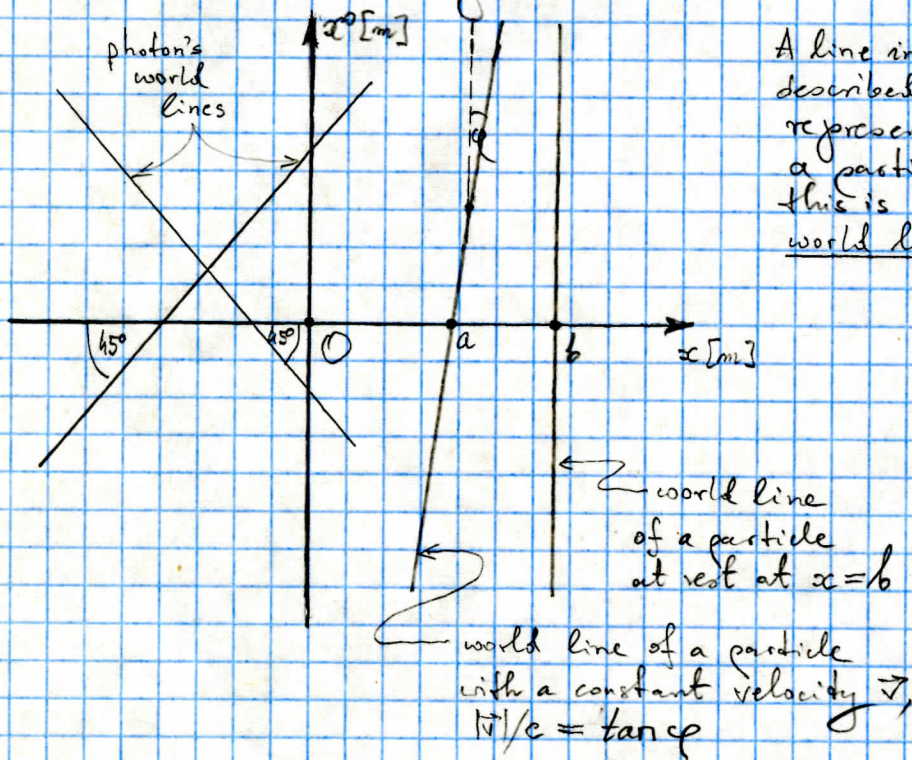 x⁰ [m]
photon's
world
lines
φ
45°
45°
O
a
b
x [m]
A line in
described
represe
a parti
this is
world l
world line
of a particle
at rest at x = b
world line of a particle
with a constant velocity v⃗,
|v⃗|/c = tanφ